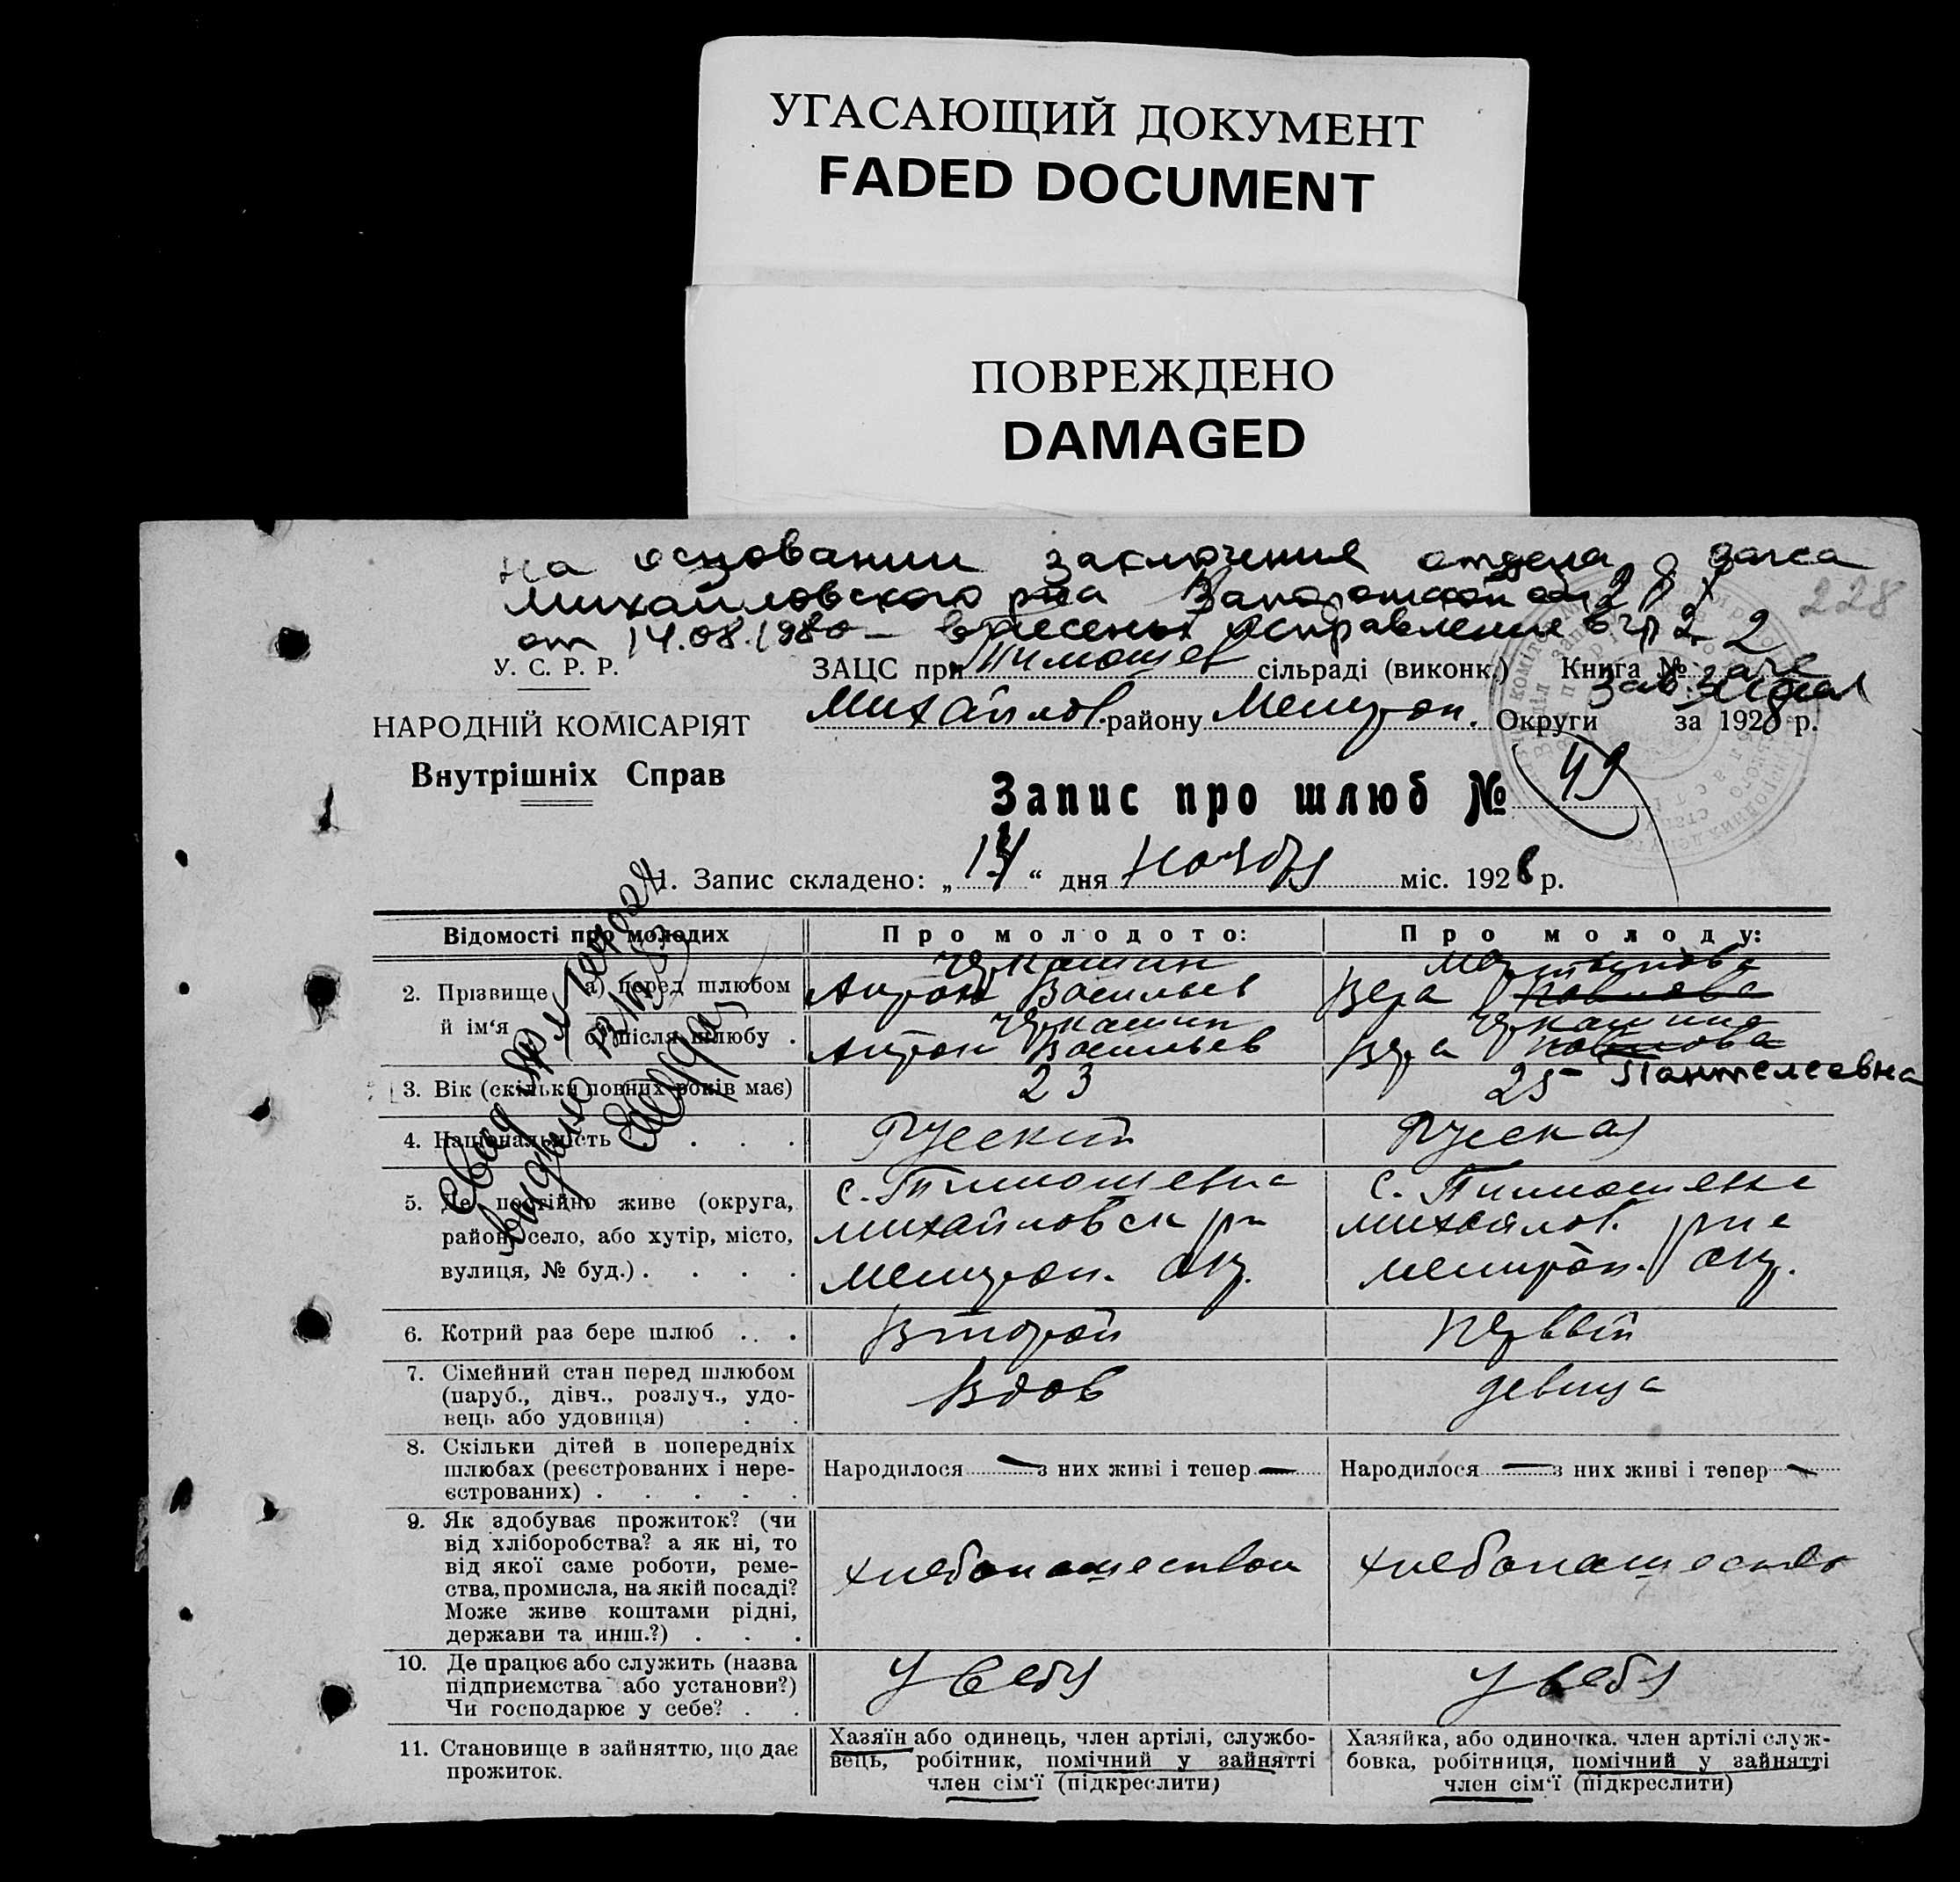 УГАСАЮЩИЙ ДОКУМЕНТ
FADED DOCUMENT
ПОВРЕЖДЕНО
DAMAGED
на основании заключения отдела загса
Михайловского р-на
от 14.08.1980 внесены исправления в гр 2
228
У. С. Р. Р.
ЗАЦС при Тимошев сільраді (виконк.) Книга №
НАРОДНІЙ КОМІСАРІЯТ
Михайлов. району Мелитоп. Округи за 1928 р.
Внутрішніх Справ
Запис про шлюб № 49
1. Запис складено: „14“ дня Ноября міс. 1928 р.
Відомості про молодих
Про молодого:
Про молоду:
2. Прізвище й ім‘я
а) перед шлюбом
Чукашин
Антон Васильев
Вера
б) після шлюбу .
Чукашин
Антон Васильев
Чукашина
Вера
3. Вік (скільки повних років має)
23
25 Пантелеевна
4. Національність . . . .
Русский
Русская
5. Де постійно живе (округа,
район, село, або хутір, місто,
вулиця, № буд.) . . . .
с. Тимошевка
Михайловск р-н
Мелитоп. окр.
с. Тимошевка
Михайлов. р-на
Мелитоп. окр.
6. Котрий раз бере шлюб . . .
Второй
Первый
7. Сімейний стан перед шлюбом
(паруб., дівч., розлуч., удо-
вець або удовиця) . .
Вдов
девица
8. Скільки дітей в попередніх
шлюбах (реєстрованих і нере-
єстрованих) . . . . .
Народилося — з них живі і тепер —
Народилося — з них живі і тепер —
9. Як здобуває прожиток? (чи
від хліборобства? а як ні, то
від якої саме роботи, реме-
ства, промисла, на якій посаді?
Може живе коштами рідні,
держави та инш.?) . . .
хлебопашеством
хлебопашество
10. Де працює або служить (назва
підприємства або установи?)
Чи господарює у себе? . .
У себя
У себя
11. Становище в зайняттю, що дає
прожиток.
Хазяїн або одинець, член артілі, службо-
вець, робітник, помічний у зайнятті
член сім‘ї (підкреслити)
Хазяйка, або одиночка, член артілі служ-
бовка, робітниця, помічний у зайнятті
член сім‘ї (підкреслити)